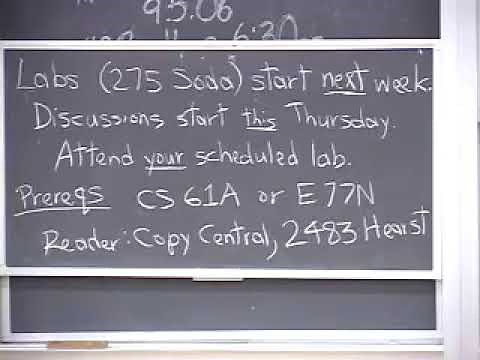 95.06
6:30
Labs (275 Soda) start next week.
Discussions start this Thursday.
Attend your scheduled lab.
Prereqs CS 61A or E 77N
Reader: Copy Central, 2483 Hearst